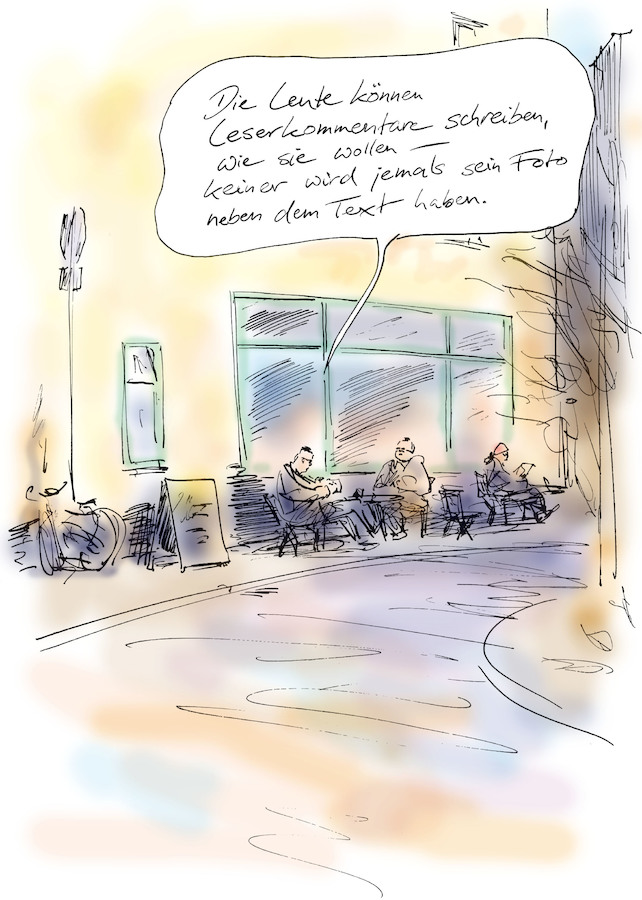 Die Leute können
Leserkommentare schreiben,
wie sie wollen –
keiner wird jemals sein Foto
neben dem Text haben.